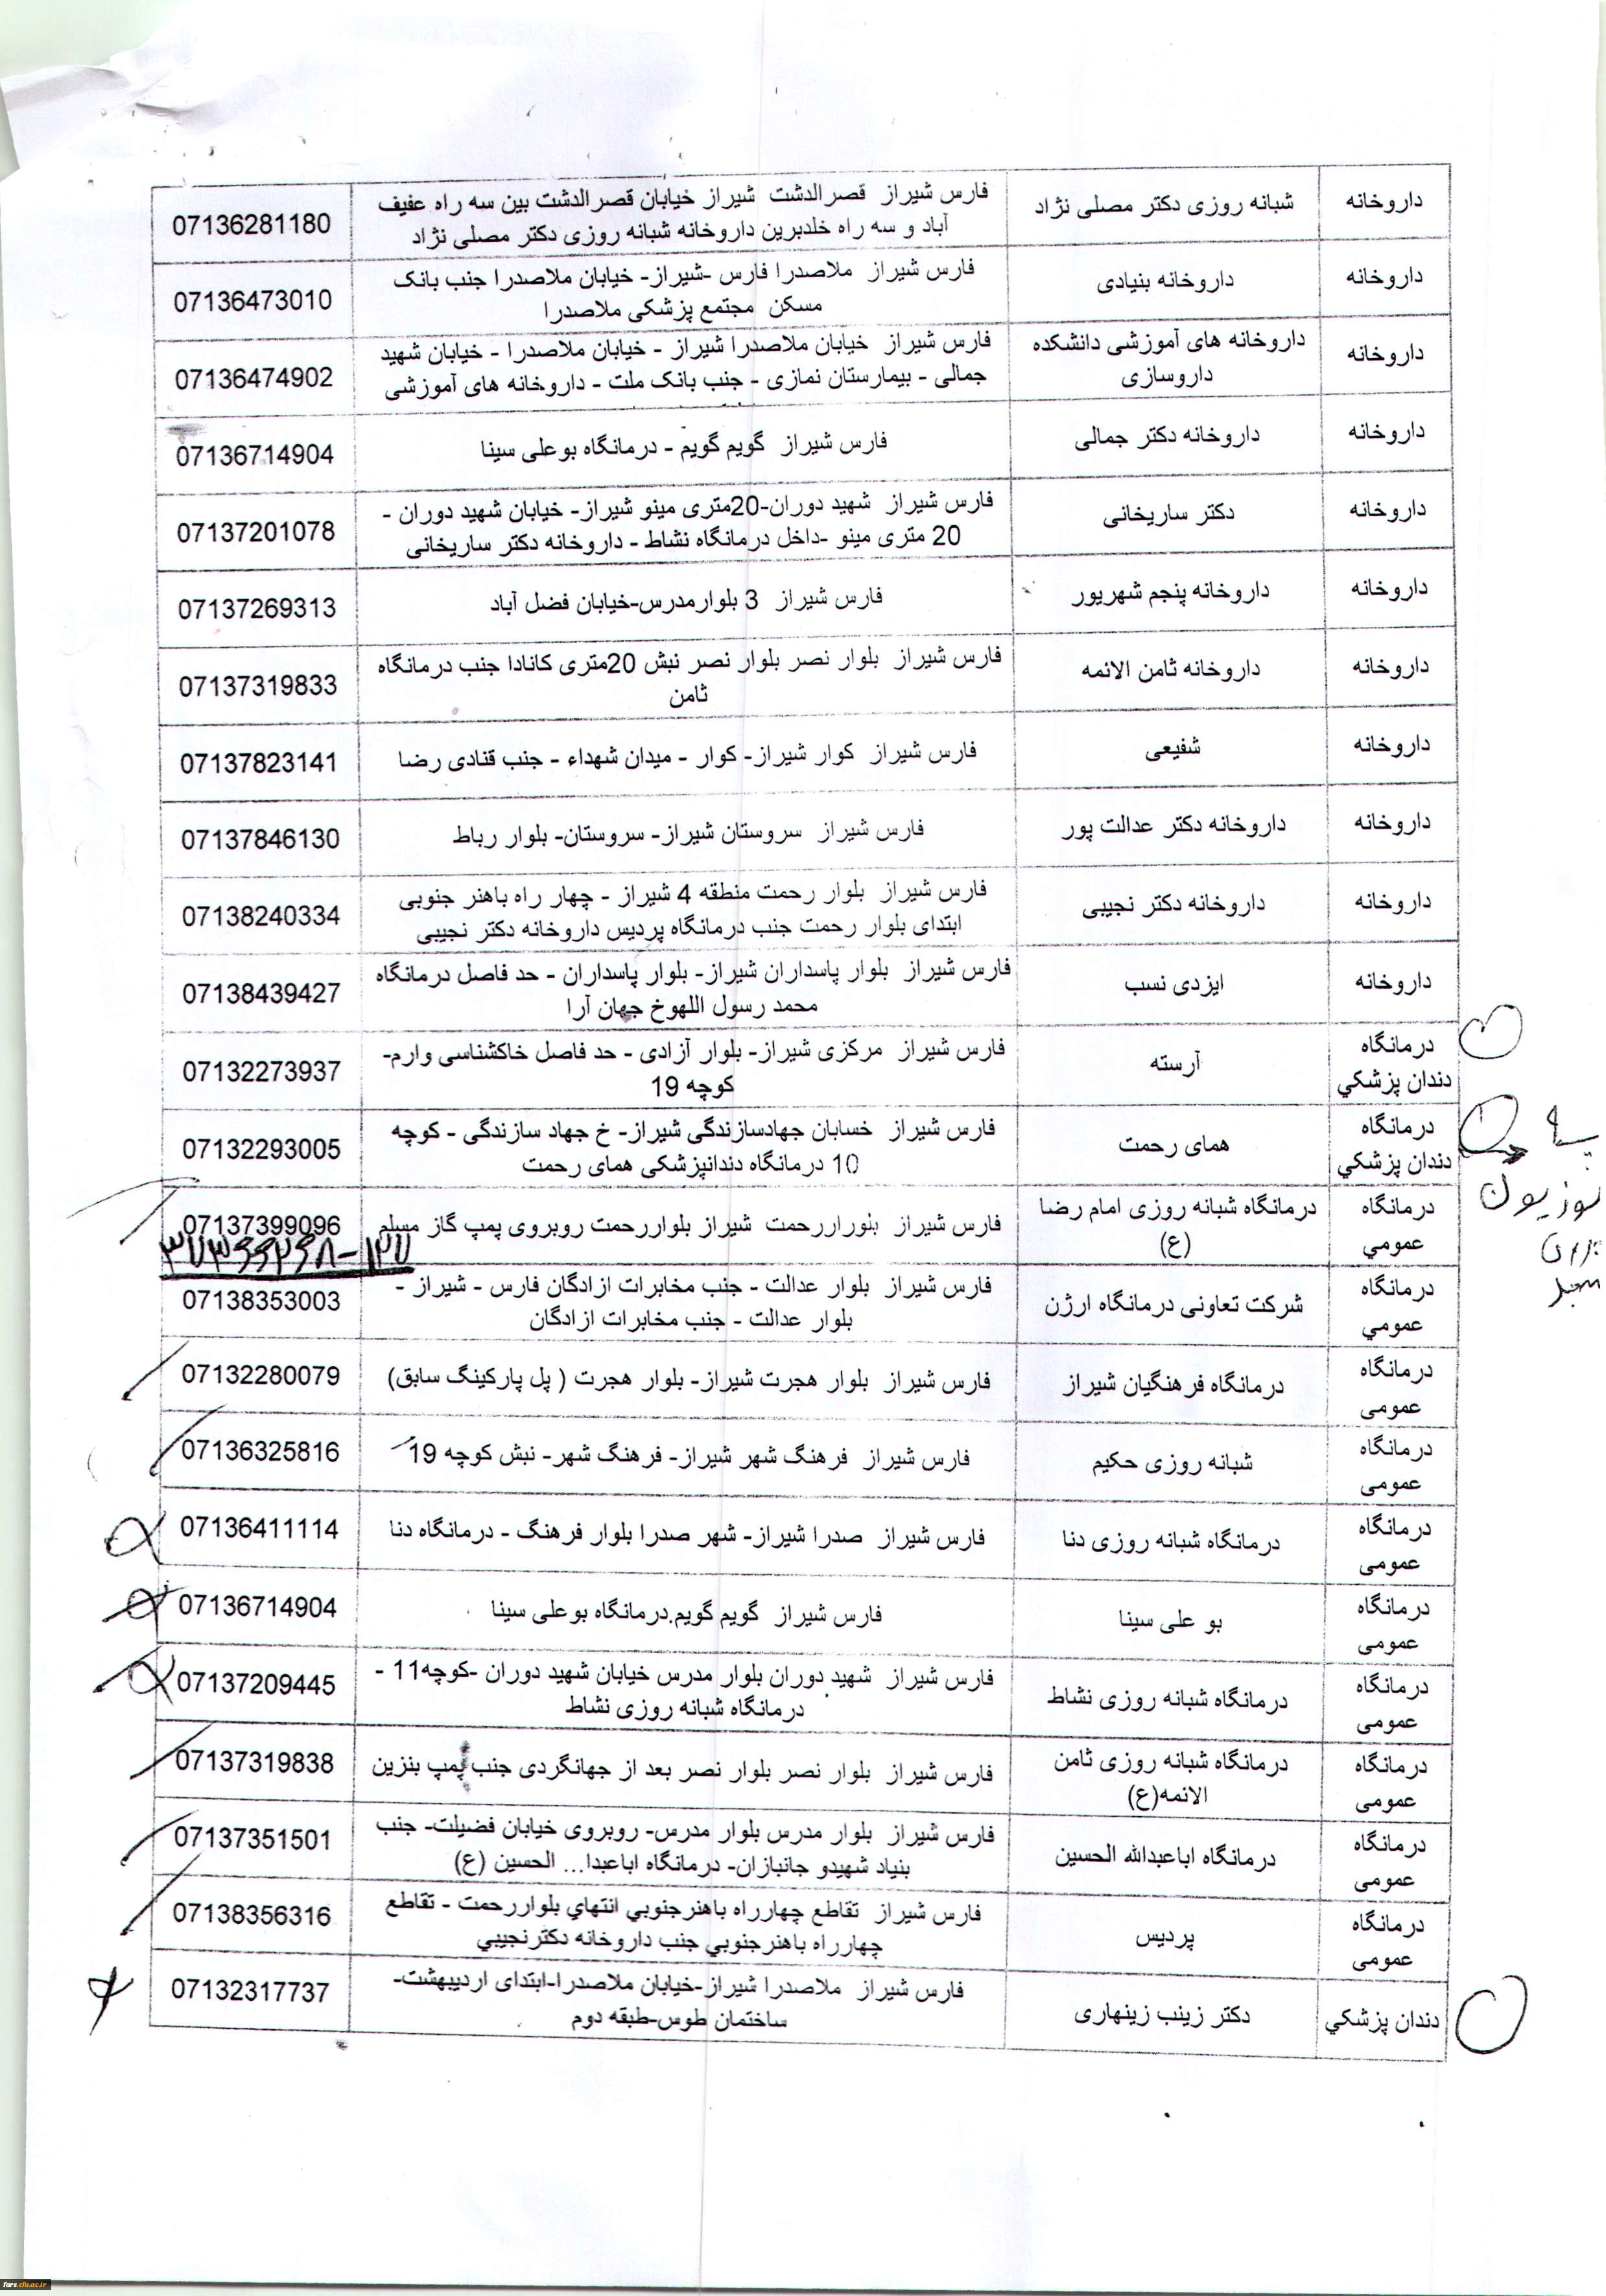 داروخانه
شبانه روزی دکتر مصلی نژاد
فارس شیراز قصرالدشت شیراز خیابان قصرالدشت بین سه راه عفیف
آباد و سه راه خلدبرین داروخانه شبانه روزی دکتر مصلی نژاد
07136281180
داروخانه
داروخانه بنیادی
فارس شیراز ملاصدرا فارس -شیراز- خیابان ملاصدرا جنب بانک
مسکن مجتمع پزشکی ملاصدرا
07136473010
داروخانه
داروخانه های آموزشی دانشکده
داروسازی
فارس شیراز خیابان ملاصدرا شیراز - خیابان ملاصدرا - خیابان شهید
جمالی - بیمارستان نمازی - جنب بانک ملت - داروخانه های آموزشی
07136474902
داروخانه
داروخانه دکتر جمالی
فارس شیراز گویم گویم - درمانگاه بوعلی سینا
07136714904
داروخانه
دکتر ساریخانی
فارس شیراز شهید دوران-20متری مینو شیراز- خیابان شهید دوران -
20 متری مینو -داخل درمانگاه نشاط - داروخانه دکتر ساریخانی
07137201078
داروخانه
داروخانه پنجم شهریور
فارس شیراز 3 بلوارمدرس-خیابان فضل آباد
07137269313
داروخانه
داروخانه ثامن الائمه
فارس شیراز بلوار نصر بلوار نصر نبش 20متری کانادا جنب درمانگاه
ثامن
07137319833
داروخانه
شفیعی
فارس شیراز کوار شیراز- کوار - میدان شهداء - جنب قنادی رضا
07137823141
داروخانه
داروخانه دکتر عدالت پور
فارس شیراز سروستان شیراز- سروستان- بلوار رباط
07137846130
داروخانه
داروخانه دکتر نجیبی
فارس شیراز بلوار رحمت منطقه 4 شیراز - چهار راه باهنر جنوبی
ابتدای بلوار رحمت جنب درمانگاه پردیس داروخانه دکتر نجیبی
07138240334
داروخانه
ایزدی نسب
فارس شیراز بلوار پاسداران شیراز- بلوار پاسداران - حد فاصل درمانگاه
محمد رسول اللهوخ جهان آرا
07138439427
درمانگاه
دندان پزشکي
آرسته
فارس شیراز مرکزی شیراز- بلوار آزادی - حد فاصل خاکشناسی وارم-
کوچه 19
07132273937
درمانگاه
دندان پزشکي
همای رحمت
فارس شیراز خسابان جهادسازندگی شیراز- خ جهاد سازندگی - کوچه
10 درمانگاه دندانپزشکی همای رحمت
07132293005
درمانگاه
عمومي
درمانگاه شبانه روزی امام رضا
(ع)
فارس شیراز بلورارحمت شیراز بلواررحمت روبروی پمپ گاز مسلم
07137399096
درمانگاه
عمومي
شرکت تعاونی درمانگاه ارژن
فارس شیراز بلوار عدالت - جنب مخابرات ازادگان فارس - شیراز -
بلوار عدالت - جنب مخابرات ازادگان
07138353003
درمانگاه
عمومی
درمانگاه فرهنگیان شیراز
فارس شیراز بلوار هجرت شیراز- بلوار هجرت ( پل پارکینگ سابق)
07132280079
درمانگاه
عمومی
شبانه روزی حکیم
فارس شیراز فرهنگ شهر شیراز- فرهنگ شهر- نبش کوچه 19
07136325816
درمانگاه
عمومی
درمانگاه شبانه روزی دنا
فارس شیراز صدرا شیراز- شهر صدرا بلوار فرهنگ - درمانگاه دنا
07136411114
درمانگاه
عمومی
بو علی سینا
فارس شیراز گویم گویم.درمانگاه بوعلی سینا
07136714904
درمانگاه
عمومی
درمانگاه شبانه روزی نشاط
فارس شیراز شهید دوران بلوار مدرس خیابان شهید دوران -کوچه11 -
درمانگاه شبانه روزی نشاط
07137209445
درمانگاه
عمومی
درمانگاه شبانه روزی ثامن
الائمه(ع)
فارس شیراز بلوار نصر بلوار نصر بعد از جهانگردی جنب پمپ بنزین
07137319838
درمانگاه
عمومی
درمانگاه اباعبدالله الحسین
فارس شیراز بلوار مدرس بلوار مدرس- روبروی خیابان فضیلت- جنب
بنیاد شهیدو جانبازان- درمانگاه اباعبدا... الحسین (ع)
07137351501
درمانگاه
عمومی
پردیس
فارس شیراز تقاطع چهارراه باهنرجنوبي انتهاي بلواررحمت - تقاطع
چهارراه باهنرجنوبي جنب داروخانه دکترنجیبي
07138356316
دندان پزشکي
دکتر زینب زینهاری
فارس شیراز ملاصدرا شیراز-خیابان ملاصدرا-ابتدای اردیبهشت-
ساختمان طوس-طبقه دوم
07132317737
fars.cfu.ac.ir